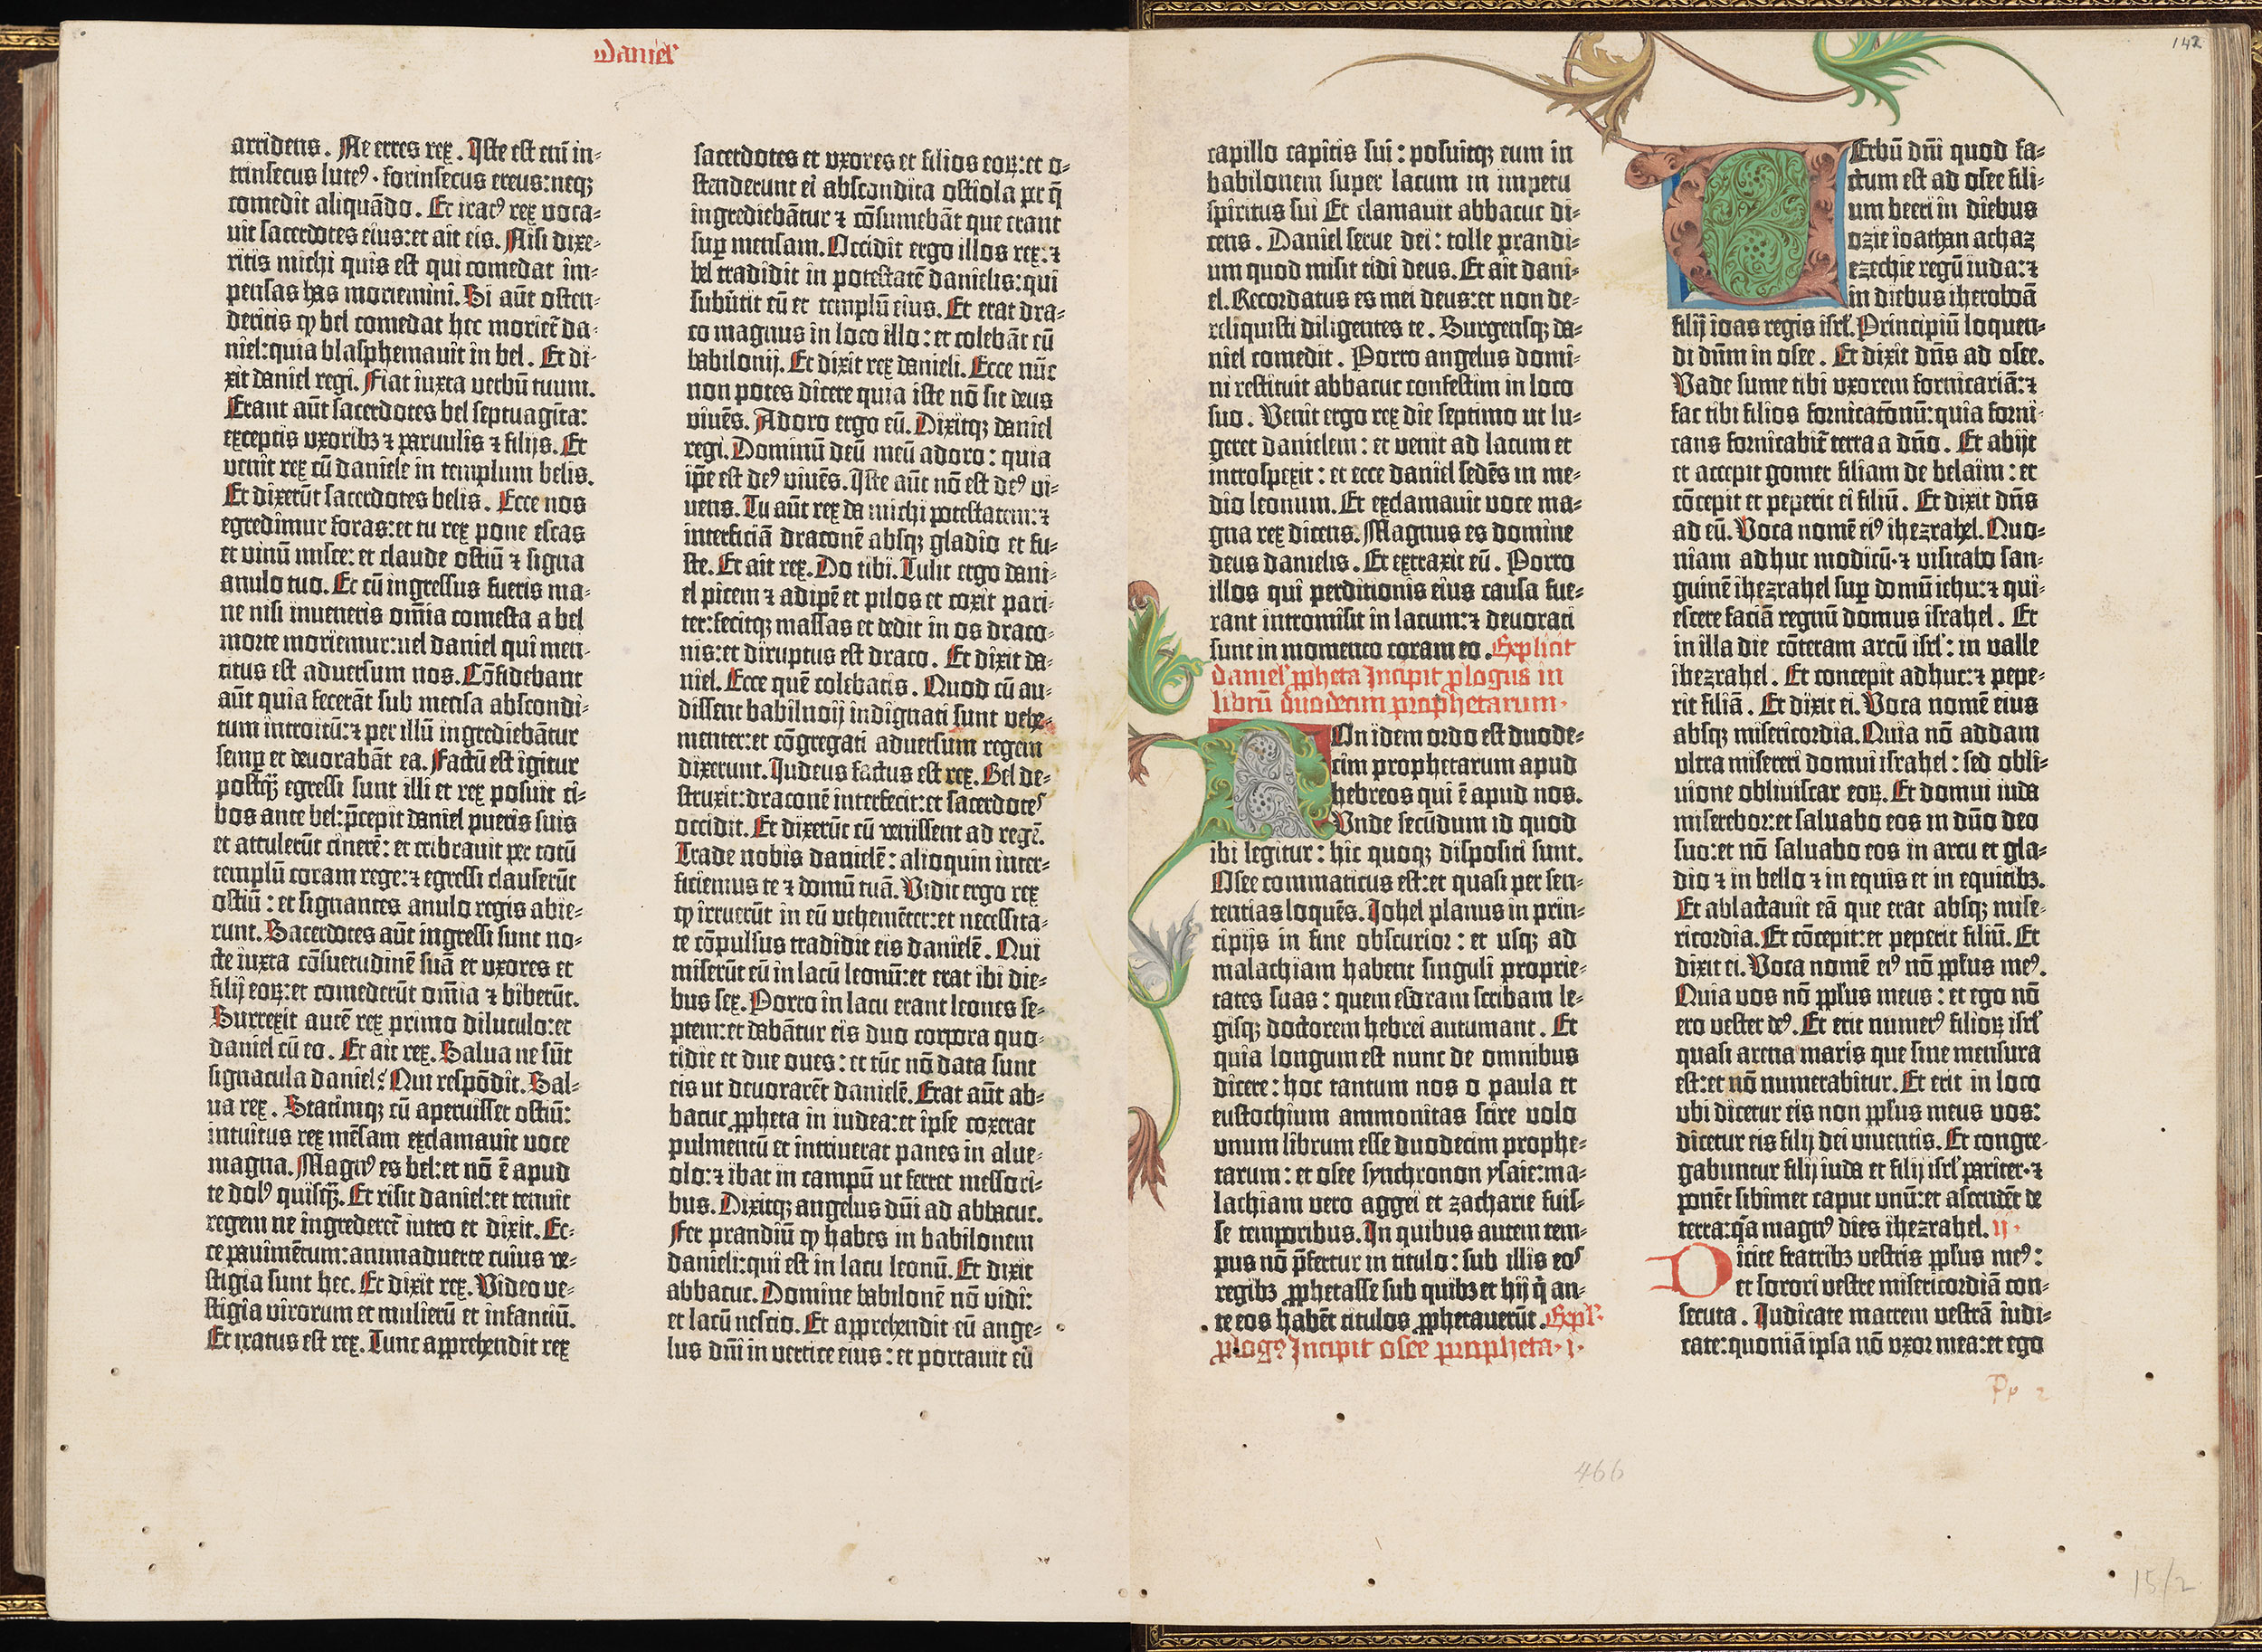 Daniel
arridens. Ne erres rex. Iste est enī in-
trinsecus lute⁹. forinsecus ereus: neqꝫ
comedit aliquādo. Et irat⁹ rex voca-
uit sacerdotes eius: et ait eis. Nisi dixe-
ritis michi quis est qui comedat im-
pensas has moriemini. Si aūt osten-
deritis ꝙ bel comedat hec moriet̄ da-
niel: quia blasphemauit in bel. Et di-
xit daniel regi. Fiat iuxta verbū tuum.
Erant aūt sacerdotes bel septuagīta:
exceptis vxoribꝫ ⁊ paruulis ⁊ filijs. Et
venit rex cū daniele in templum belis.
Et dixerūt sacerdotes belis. Ecce nos
egredimur foras: et tu rex pone escas
et vinū misce: et claude ostiū ⁊ signa
anulo tuo. Et cū ingressus fueris ma-
ne nisi inueneris om̄ia comesta a bel
morte moriemur: uel daniel qui men-
titus est aduersum nos. Cōfidebant
aūt quia fecerāt sub mensa abscondi-
tum introitū: ⁊ per illū ingrediebātur
semꝑ et deuorabāt ea. Factū est igitur
postꝙ̄ egressi sunt illi et rex posuit ci-
bos ante bel: p̄cepit daniel pueris suis
et attulerūt cinerē: et cribrauit per totū
templū coram rege: ⁊ egressi clauserūt
ostiū: et signantes anulo regis abie-
runt. Sacerdotes aūt ingressi sunt no-
cte iuxta cōsuetudinē suā et vxores et
filij eoꝝ: et comederūt om̄ia ⁊ biberūt.
Surrexit autē rex primo diluculo: et
daniel cū eo. Et ait rex. Salua ne sūt
signacula daniel? Qui respōdit. Sal-
ua rex. Statimqꝫ cū aperuisset ostiū:
intuitus rex mēsam exclamauit voce
magna. Magn⁹ es bel: et nō ē apud
te dol⁹ quisꝙ̄. Et risit daniel: et tenuit
regem ne ingrederet̄ intro et dixit. Ec-
ce pauimētum: animaduerte cuius ve-
stigia sunt hec. Et dixit rex. Video ve-
stigia virorum et mulierū et infantiū.
Et iratus est rex. Tunc apprehendit rex
sacerdotes et vxores et filios eoꝝ: et o-
stenderunt ei abscondita ostiola per q̄
ingrediebātur ⁊ cōsumebāt que erant
suꝑ mensam. Occidit ergo illos rex: ⁊
bel tradidit in potestatē danielis: qui
subūtit eū et templū eius. Et erat dra-
co magnus in loco illo: et colebāt eū
babilonij. Et dixit rex danieli. Ecce nūc
non potes dicere quia iste nō sit deus
viuēs. Adoro ergo eū. Dixitqꝫ daniel
regi. Dominū deū meū adoro: quia
ip̄e est de⁹ viuēs. Iste aūt nō est de⁹ vi-
uens. Tu aūt rex da michi potestatem: ⁊
interficiā draconē absqꝫ gladio et fu-
ste. Et ait rex. Do tibi. Tulit ergo dani-
el picem ⁊ adipē et pilos et coxit pari-
ter: fecitqꝫ massas et dedit in os draco-
nis: et diruptus est draco. Et dixit da-
niel. Ecce quē colebatis. Quod cū au-
dissent babilnoij indignati sunt vehe-
menter: et cōgregati aduersum regem
dixerunt. Iudeus factus est rex. Bel de-
struxit: draconē interfecit: et sacerdotes
occidit. Et dixerūt cū venissent ad regē.
Trade nobis danielē: alioquin inter-
ficiemus te ⁊ domū tuā. Vidit ergo rex
ꝙ irruerūt in eū vehemēter: et necessita-
te cōpulsus tradidit eis danielē. Qui
miserūt eū in lacū leonū: et erat ibi die-
bus sex. Porro in lacu erant leones se-
ptem: et dabātur eis duo corpora quo-
tidie et due oues: et tūc nō data sunt
eis ut deuorarēt danielē. Erat aūt ab-
bacuc ꝓpheta in iudea: et ipse coxerat
pulmentū et intriuerat panes in alue-
olo: ⁊ ibat in campū ut ferret messori-
bus. Dixitqꝫ angelus dn̄i ad abbacuc.
Fer prandiū ꝙ habes in babilonem
danieli: qui est in lacu leonū. Et dixit
abbacuc. Domine babilonē nō vidi:
et lacū nescio. Et apprehendit eū ange-
lus dn̄i in vertice eius: et portauit eū
142
capillo capitis sui: posuitqꝫ eum in
babilonem super lacum in impetu
spiritus sui Et clamauit abbacuc di-
cens. Daniel serue dei: tolle prandi-
um quod misit tidi deus. Et ait dani-
el. Recordatus es mei deus: et non de-
reliquisti diligentes te. Surgensqꝫ da-
niel comedit. Porro angelus domi-
ni restituit abbacuc confestim in loco
suo. Venit ergo rex die septimo ut lu-
geret danielem: et venit ad lacum et
introspexit: et ecce daniel sedēs in me-
dio leonum. Et exclamauit voce ma-
gna rex dicens. Magnus es domine
deus danielis. Et extraxit eū. Porro
illos qui perditionis eius causa fue-
rant intromisit in lacum: ⁊ deuorati
sunt in momento coram eo. Explicit
daniel ꝓpheta Incipit ꝓlogus in
librū duodecim prophetarum.
Non idem ordo est duode-
cim prophetarum apud
hebreos qui ē apud nos.
Vnde secūdum id quod
ibi legitur: hic quoqꝫ dispositi sunt.
Osee commaticus est: et quasi per sen-
tentias loquēs. Iohel planus in prin-
cipijs in fine obscurior: et usqꝫ ad
malachiam habent singuli proprie-
tates suas: quem esdram scribam le-
gisqꝫ doctorem hebrei autumant. Et
quia longum est nunc de omnibus
dicere: hoc tantum nos o paula et
eustochium ammonitas scire volo
vnum librum esse duodecim prophe-
tarum: et osee synchronon ysaie: ma-
lachiam vero aggei et zacharie fuis-
se temporibus. In quibus autem tem-
pus nō p̄fertur in titulo: sub illis eos
regibꝫ ꝓphetasse sub quibꝫ et hij q̇ an-
te eos habēt titulos ꝓphetauerūt. Expl̄.
ꝓlog⁹ Incipit osee propheta. i.
Verbū dn̄i quod fa-
ctum est ad osee fili-
um beeri in diebus
ozie ioathan achaz
ezechie regū iuda: ⁊
in diebus iheroboā
filij ioas regis isrl̄. Principiū loquen-
di dn̄m in osee. Et dixit dn̄s ad osee.
Vade sume tibi vxorem fornicariā: ⁊
fac tibi filios fornicatōnū: quia forni-
cans fornicabit̄ terra a dn̄o. Et abijt
et accepit gomer filiam de belaim: et
cōcepit et peperit ei filiū. Et dixit dn̄s
ad eū. Voca nomē ei⁹ ihezrahel. Quo-
niam adhuc modicū. ⁊ visitabo san-
guinē ihezrahel suꝑ domū iehu: ⁊ qui-
escere faciā regnū domus israhel. Et
in illa die cōteram arcū isrl̄: in valle
ihezrahel. Et concepit adhuc: ⁊ pepe-
rit filiā. Et dixit ei. Voca nomē eius
absqꝫ misericordia. Quia nō addam
ultra misereri domui israhel: sed obli-
uione obliuiscar eoꝝ. Et domui iuda
miserebor: et saluabo eos in dn̄o deo
suo: et nō saluabo eos in arcu et gla-
dio ⁊ in bello ⁊ in equis et in equitibꝫ.
Et ablactauit eā que erat absqꝫ mise-
ricordia. Et cōcepit: et peperit filiū. Et
dixit ei. Voca nomē ei⁹ nō ppl̄us me⁹.
Quia vos nō ppl̄us meus: et ego nō
ero vester de⁹. Et erit numer⁹ filioꝝ isrl̄
quasi arena maris que sine mensura
est: et nō numerabitur. Et erit in loco
vbi dicetur eis non ppl̄us meus vos:
dicetur eis filij dei viuentis. Et congre-
gabuntur filij iuda et filij isrl̄ pariter. ⁊
ponēt sibimet caput vnū: et ascendēt de
terra: q̄a magn⁹ dies ihezrahel. ij.
Dicite fratribꝫ vestris ppl̄us me⁹:
et sorori vestre misericordiā con-
secuta. Iudicate matrem vestrā iudi-
cate: quoniā ipsa nō vxor mea: et ego
466
15/2